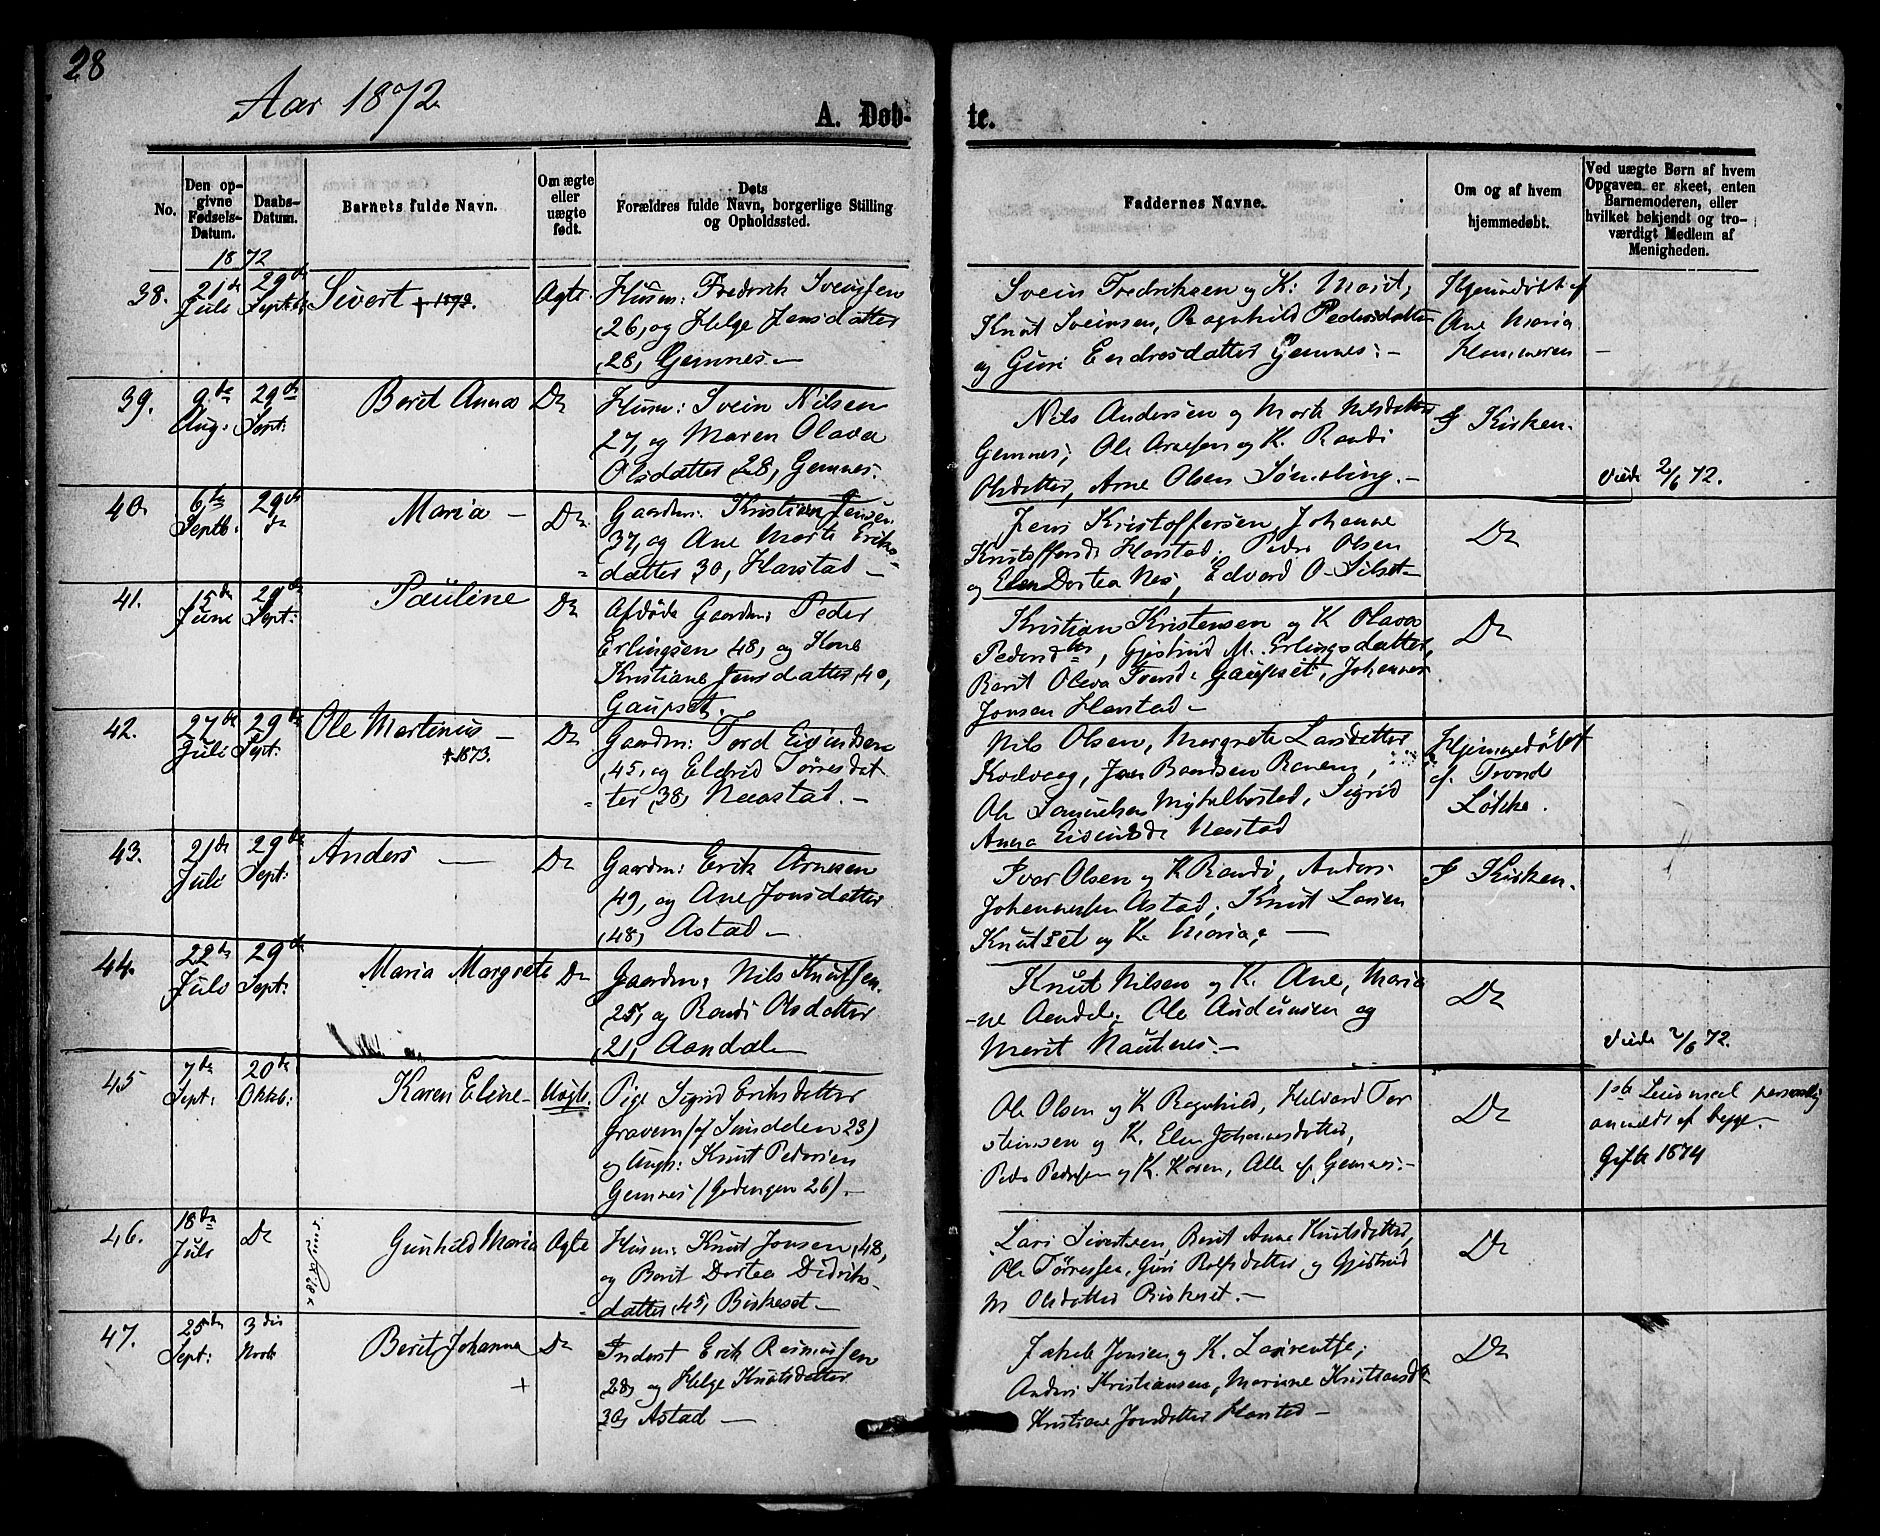 28
Aar 1872
A. Døb-
te.
No.
Den op-
givne
Fødsels-
Datum.
Daabs-
Datum.
Barnets fulde Navn.
Om ægte
eller
uægte
født.
Dets
Forældres fulde Navn, borgerlige Stilling
og Opholdssted.
Faddernes Navne.
Om og af hvem
hjemmedøbt.
Ved uægte Børn af hvem
Opgaven er skeet, enten
Barnemoderen, eller
hvilket bekjendt og tro-
værdigt Medlem af
Menigheden.
1872
38.
21de
Juli
29de
Septb:
Sivert + 1872.
Ægte.
Husm: Fredrik Sveinsen
26, og Helge Jensdatter
28, Gemnes. –
Svein Fredriksen og K: Marit,
Knut Sveinsen, Ragnhild Pedersdatter
og Guri Endresdatter Gemnes. –
Hjemmedøbt af
Ane Maria
Hammeren
39.
9de
Aug.
29de
Sept:
Berit Anna
Do
Husm: Svein Nilsen
27, og Maren Olava
Olsdatter 28, Gemnes.
Nils Andersen og Marit Nilsdatter
Gemnes, Ole Arnesen og K. Randi
Olsdatter, Arne Olsen –
I Kirken.
Viede 2/6 72.
40.
6te
Septb.
29de
do
Maria –
Do
Gaardm: Kristian Jensen
37, og Ane Marta Eriks-
datter 30, Harstad –
Jens Kristoffersen, Johanne
Harstad, Peder Olsen
og Elen Dortea Nes, Edvard O. Silset –
Do
41.
15de
Juni
29de
Sept:
Pauline
Do
Afdøde Gaardm: Peder
Erlingsen 48, og Kone
Kristiane Jensdatter, 40,
Gaupset.
Kristian Kristensen og K Olava
Pedersdtr, Gjertrud M. Erlingsdatter,
Berit Oleva Gaupset, Johannes
Jonsen Harstad –
Do
42.
27de
Juli
29de
Sept:
Ole Martinus –
+ 1873.
Do
Gaardm: Tord Eivindsen
45, og Eldrid Tørresdat
ter 38, Naastad. –
Nils Olsen, Margrete Larsdatter
Kodvaag, Baardsen
Ole Samuelsen, Sigrid
Anna Naastad
Hjemmedøbt
af Trond
Løkke.
43.
21de
Juli
29de
Sept:
Anders –
Do
Gaardm: Erik Arnesen
49, og Ane Jonsdatter
48, Astad –
Ivar Olsen og K Randi, Anders
Johannessen Astad, Knut Larsen
Knutset og K. Maria, –
I Kirken.
44.
22de
Juli
29de
Sept:
Maria Margrete
Do
Gaardm: Nils Knutsen
25, og Randi Olsdatter
21, Aandal
Knut Nilsen og K. Ane, Maria
-ne Aandal, Ole Audunsen og
Marit Nautnes. –
Do
Viede 2/6 72.
45
7de
Sept:
20de
Oktb:
Karen Eline –
Uægte.
Pige Sigrid Eriksdatter
Gravem (af Sundalen 23)
og Ungk: Knut Pedersen
Gemnes (Gedengen 26). –
Ole Olsen og K Ragnhild, Halvard Tor
steinsen og K. Elen Johannesdatter,
Peder Pedersen og K. Karen, Alle af Gemnes. –
Do
1ste Leiermaal personlig
anmeldt af begge. –
Gifte 1874
46.
18de
Juli
Do
Gunhild Maria
Ægte
Husm: Knut Jonsen, 48,
og Berit Dortea Didriks-
datter, 45, Biskeset –
Lars Sivertsen, Berit Anne Knutsdatter,
Ole Tørressen, Guri Rolfsdatter og Gjertrud
M Olsdatter Biskeset. –
Do
47.
25de
Sept:
3die
Novb:
Berit Johanna
+
Do
Inderst Erik Rasmussen
28, og Helge Knutsdatter
30, Astad –
Jakob Jonsen og K. Laurentse,
Anders Kristiansen, Mariane Kristiansdtr
Kristiane Jonsdatter Harstad –
Do